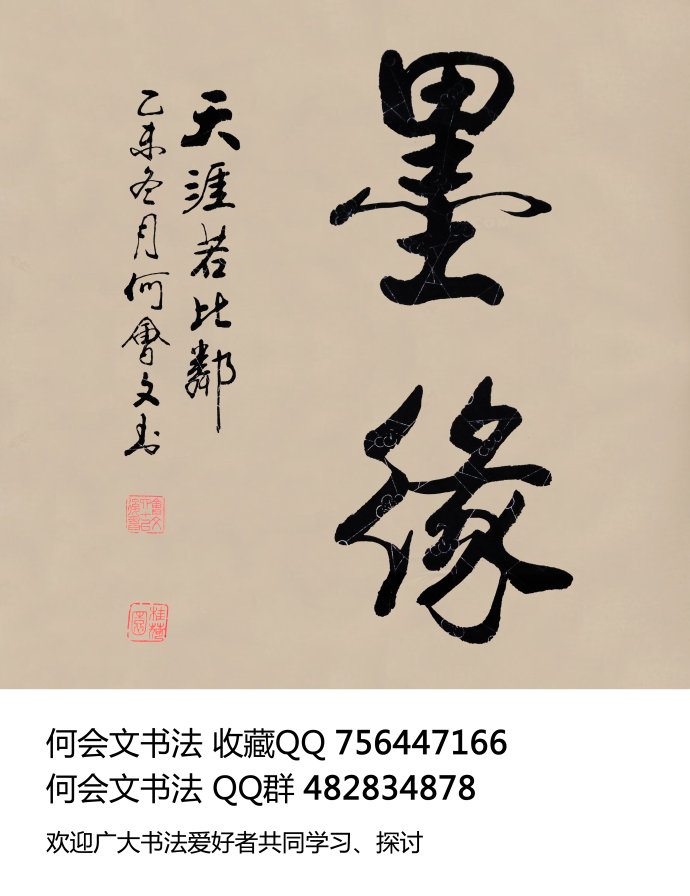 墨缘
天涯若比鄰
乙未冬月何會文书
何会文书法 收藏QQ 756447166
何会文书法 QQ群 482834878
欢迎广大书法爱好者共同学习、探讨